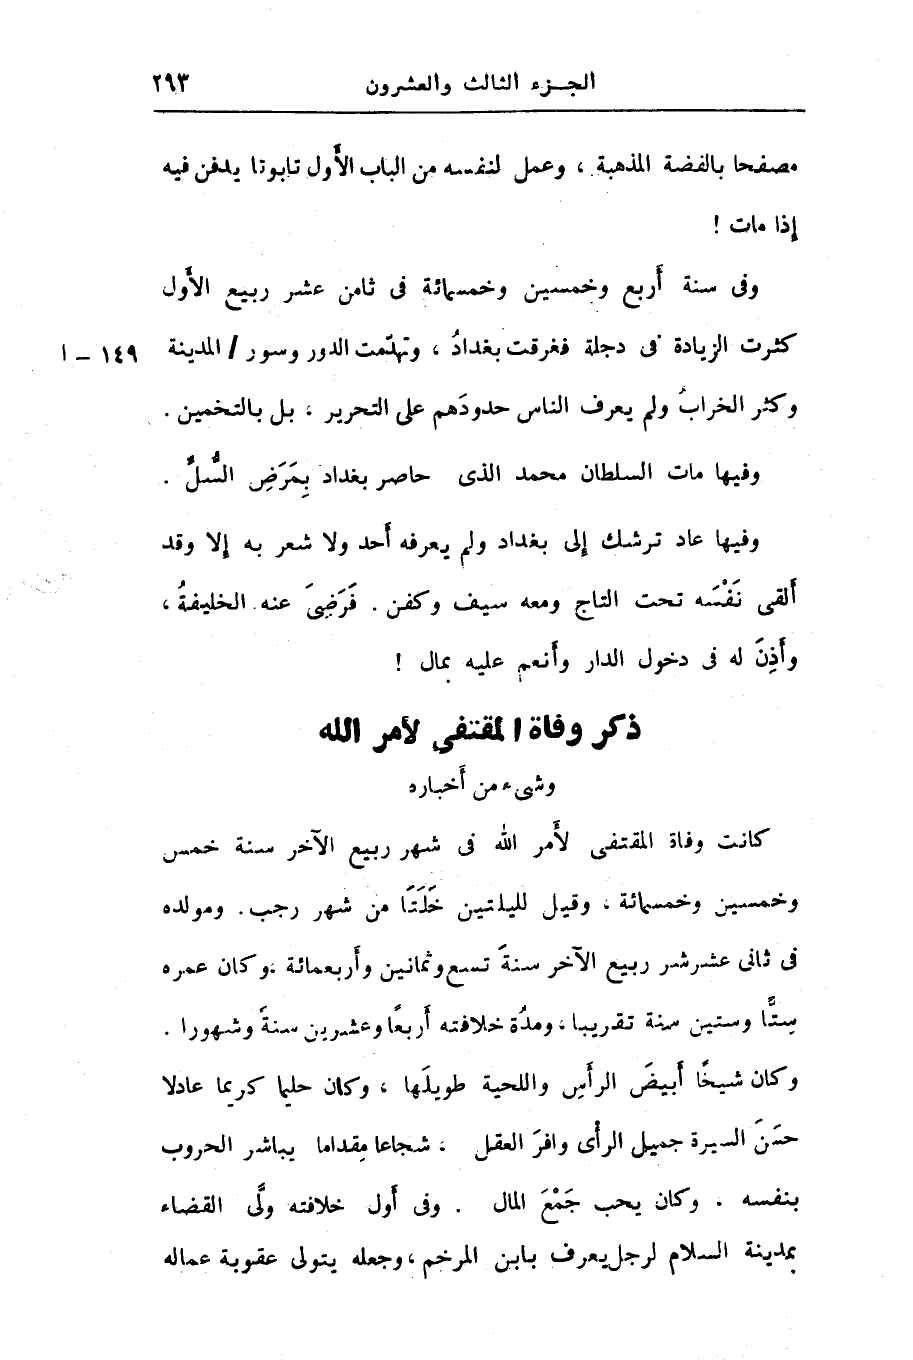 الجزء الثالث والعشرون ٢٩٣
مصفحا بالفضة المذهبة ، وعمل لنفسه من الباب الأَول تابوتا يدفن فيه
إذا مات !
وفى سنة أَربع وخمسين وخمسمائة فى ثامن عشر ربيع الأَول
كثرت الزيادة فى دجلة فغرقت بغدادُ ، وتهدّمت الدور وسور / المدينة ١٤٩ – ا
وكثر الخرابُ ولم يعرف الناس حدودَهم على التحرير ، بل بالتخمين .
وفيها مات السلطان محمد الذى حاصر بغداد بِمَرَضِ السُّلِّ .
وفيها عاد ترشك إلى بغداد ولم يعرفه أَحد ولا شعر به إلا وقد
أَلقى نَفْسَه تحت التاج ومعه سيف وكفن . فَرَضِىَ عنه الخليفةُ ،
وأَذِنَ له فى دخول الدار وأَنعم عليه بمال !
ذكر وفاة المقتفى لأمر الله
وشىء من أَخباره
كانت وفاة المقتفى لأَمر الله فى شهر ربيع الآخر سنة خمس
وخمسين وخمسمائة ، وقيل لليلتين خَلَتَا من شهر رجب . ومولده
فى ثانى عشرشر ربيع الآخر سنةَ تسع وثمانين وأَربعمائة ،وكان عمره
ستًّا وستين سنة تقريبا ، ومدُة خلافته أَربعًا وعشرين سنةً وشهورا .
وكان شيخًا أَبيضَ الرأَسِ واللحية طويلَها ، وكان حليما كريما عادلا
حسَنَ السيرة جميل الرأى وافرَ العقل ، شجاعا مِقداما يباشر الحروب
بنفسه . وكان يحب جَمْعَ المال . وفى أَول خلافته ولَّى القضاء
بمدينة السلام لرجل يعرف بابن المرخم ، وجعله يتولى عقوبة عماله